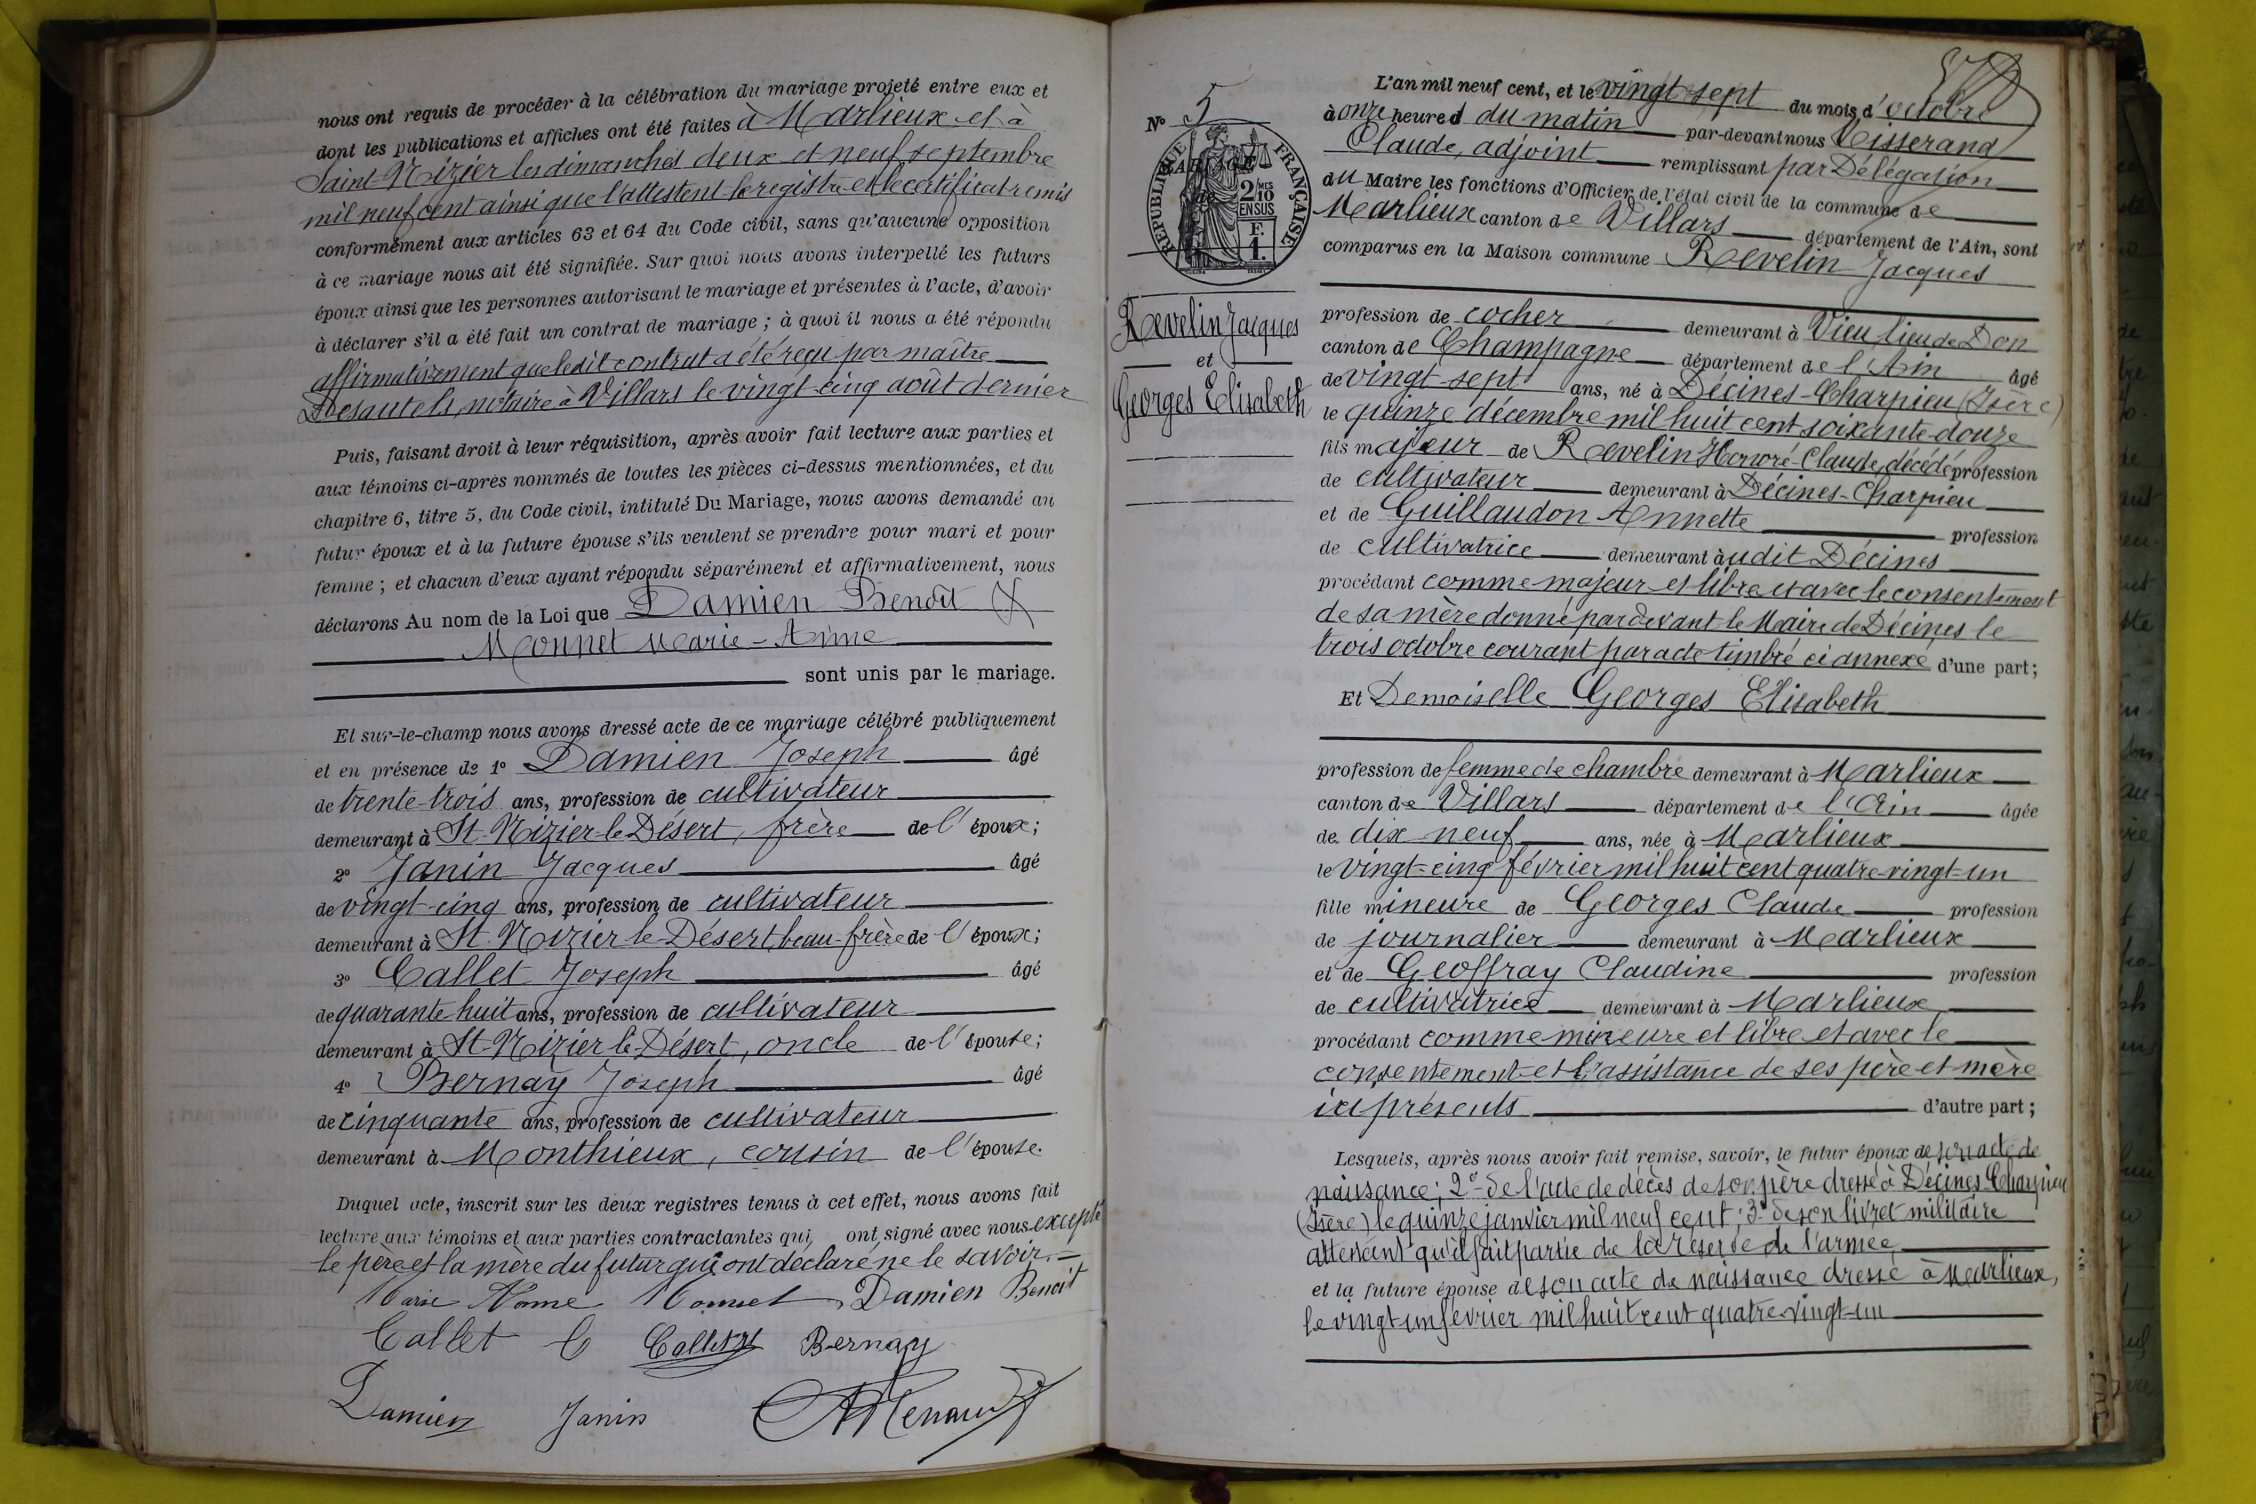 nous ont requis de procéder à la célébration du mariage projeté entre eux et
dont les publications et affiches ont été faites à Marlieux et à
Saint-Nizier les dimanches deux et neuf septembre
mil neuf cent ainsi que l'attestent le registre et le certificat remis
conformément aux articles 63 et 64 du Code civil, sans qu'aucune opposition
à ce mariage nous ait été signifiée. Sur quoi nous avons interpellé les futurs
époux ainsi que les personnes autorisant le mariage et présentes à l'acte, d'avoir
à déclarer s'il a été fait un contrat de mariage ; à quoi il nous a été répondu
affirmativement que ledit contrat a été reçu par maître
Desautels, notaire à Villars le vingt-cinq août dernier
Puis, faisant droit à leur réquisition, après avoir fait lecture aux parties et
aux témoins ci-après nommés de toutes les pièces ci-dessus mentionnées, et du
chapitre 6, titre 5, du Code civil, intitulé Du Mariage, nous avons demandé au
futur époux et à la future épouse s'ils veulent se prendre pour mari et pour
femme ; et chacun d'eux ayant répondu séparément et affirmativement, nous
déclarons Au nom de la Loi que Damien Benoît &
Monnet Marie-Anne
sont unis par le mariage.
Et sur-le-champ nous avons dressé acte de ce mariage célébré publiquement
et en présence de 1° Damien Joseph âgé
de trente-trois ans, profession de cultivateur
demeurant à St Nizier-le-Désert, frère de l'époux;
2° Janin Jacques âgé
de vingt-cinq ans, profession de cultivateur
demeurant à St Nizier le Désert, beau-frère de l'époux;
3° Callet Joseph âgé
de quarante huit ans, profession de cultivateur
demeurant à St-Nizier le Désert, oncle de l'épouse;
4° Bernay Joseph âgé
de cinquante ans, profession de cultivateur
demeurant à Monthieux, cousin de l'épouse.
Duquel acte, inscrit sur les deux registres tenus à cet effet, nous avons fait
lecture aux témoins et aux parties contractantes qui ont signé avec nous excepté
le père et la mère du futur qui ont déclaré ne le savoir.
Marie Anne Monnet Damien Benoit
Callet C Bernay
Damien Janin
N° 5
RÉPUBLIQUE FRANÇAISE
2/10 MES
EN SUS
F. 1.
Revelin Jacques
et
Georges Elisabeth
L'an mil neuf cent, et le vingt-sept du mois d'octobre
à onze heures du matin par-devant nous Tisserand
Claude, adjoint remplissant par Délégation
du Maire les fonctions d'Officier de l'état civil de la commune de
Marlieux canton de Villars département de l'Ain, sont
comparus en la Maison commune Revelin Jacques
profession de cocher demeurant à Vieu lieu de Don
canton de Champagne département de l'Ain âgé
de vingt-sept ans, né à Décines-Charpieu (Isère)
le quinze décembre mil huit cent soixante-douze
fils majeur de Revelin Honoré-Claude, décédé profession
de cultivateur demeurant à Décines-Charpieu
et de Guillaudon Annette profession
de cultivatrice demeurant audit Décines
procédant comme majeur et libre et avec le consentement
de sa mère donné pardevant le Maire de Décines le
trois octobre courant par acte timbré ci annexé d'une part;
Et Demoiselle Georges Elisabeth
profession de femme de chambre demeurant à Marlieux
canton de Villars département de l'Ain âgée
de dix neuf ans, née à Marlieux
le vingt-cinq février mil huit cent quatre-vingt-un
fille mineure de Georges Claude profession
de journalier demeurant à Marlieux
et de Geoffray Claudine profession
de cultivatrice demeurant à Marlieux
procédant comme mineure et libre et avec le
consentement et l'assistance de ses père et mère
ici présents d'autre part;
Lesquels, après nous avoir fait remise, savoir, le futur époux de son acte de
naissance; 2° de l'acte de décès de son père dressé à Décines Charpieu
(Isère) le quinze janvier mil neuf cent; 3° de son livret militaire
attestant qu'il fait partie de la réserve de l'armée
et la future épouse de son acte de naissance dressé à Marlieux,
le vingt-un février mil huit cent quatre-vingt-un